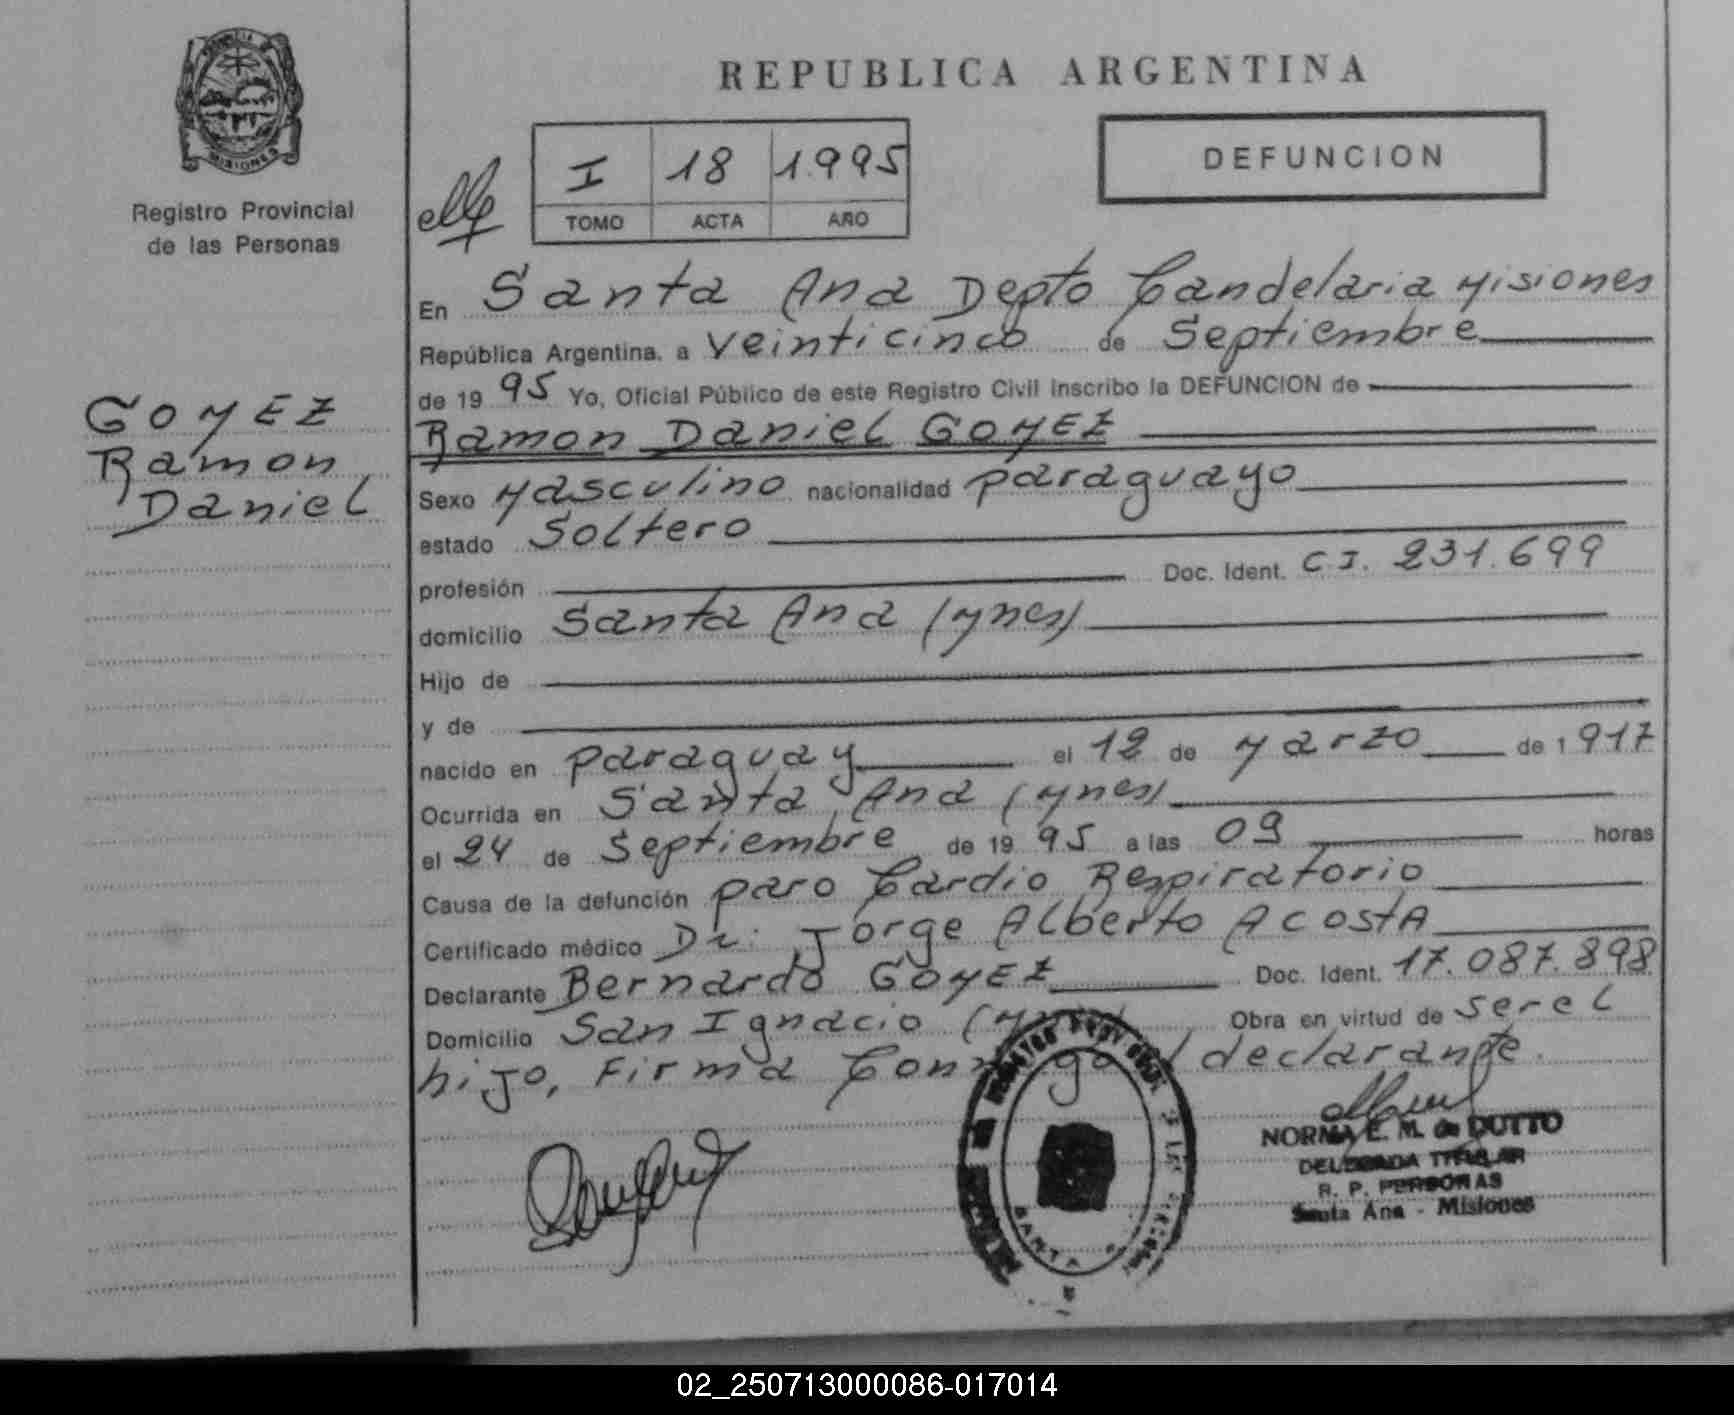 PROVINCIA DE
MISIONES
Registro Provincial
de las Personas
GOMEZ
Ramon
Daniel
REPUBLICA ARGENTINA
I 18 1995
TOMO ACTA AÑO
DEFUNCION
En Santa Ana Depto Candelaria Misiones
República Argentina, a Veinticinco de Septiembre
de 19 95 Yo, Oficial Público de este Registro Civil Inscribo la DEFUNCION de
Ramon Daniel GOMEZ
Sexo Masculino nacionalidad paraguayo
estado Soltero
profesión Doc. Ident. C.I. 231.699
domicilio Santa Ana (Mnes)
Hijo de
y de
nacido en paraguay el 12 de Marzo de 1 917
Ocurrida en Santa Ana (Mnes)
el 24 de Septiembre de 19 95 a las 09 horas
Causa de la defunción paro Cardio Respiratorio
Certificado médico Dr. Jorge Alberto ACOSTA
Declarante Bernardo GOMEZ Doc. Ident. 17.087.898
Domicilio San Ignacio (Mnes) Obra en virtud de ser el
hijo, Firma Conmigo el declarante.
NORMA E. M. de DUTTO
DELEGADA TITULAR
R. P. PERSONAS
Santa Ana - Misiones
SANTA
02_250713000086-017014